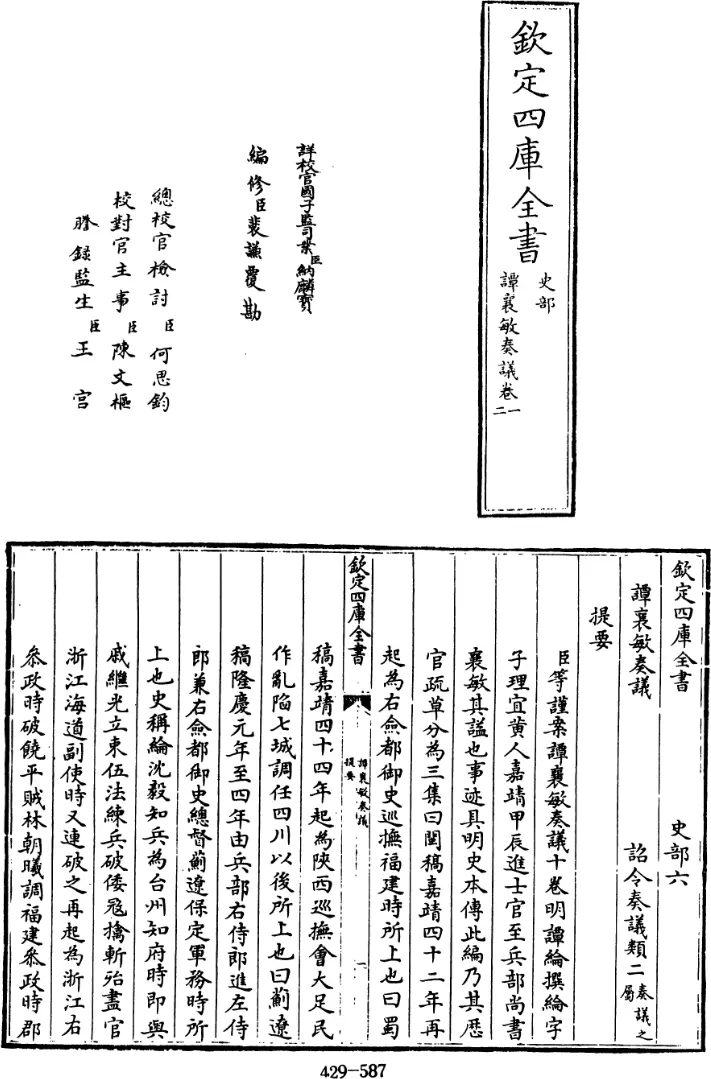 欽定四庫全書
史部
譚襄敏奏議卷一
二
詳校官國子監司業臣納麟寶
編修臣裴謙覆勘
總校官檢討臣何思鈞
校對官主事臣陳文樞
謄錄監生臣王宫
欽定四庫全書
史部六
譚襄敏奏議
詔令奏議類二奏議之屬
提要
臣等謹案譚襄敏奏議十卷明譚綸撰綸字
子理宜黄人嘉靖甲辰進士官至兵部尚書
襄敏其諡也事迹具明史本傳此編乃其歴
官疏草分為三集曰閩稿嘉靖四十二年再
起為右僉都御史巡撫福建時所上也曰蜀
欽定四庫全書
譚襄敏奏議
提要
一
稿嘉靖四十四年起為陜西巡撫會大足民
作亂陷七城調任四川以後所上也曰薊遼
稿隆慶元年至四年由兵部右侍郎進左侍
郎兼右僉都御史總督薊遼保定軍務時所
上也史稱綸沈毅知兵為台州知府時即與
戚繼光立束伍法練兵破倭冦擒斬殆盡官
浙江海道副使時又連破之再起為浙江右
叅政時破饒平賊林朝曦調福建叅政時郡
429-587